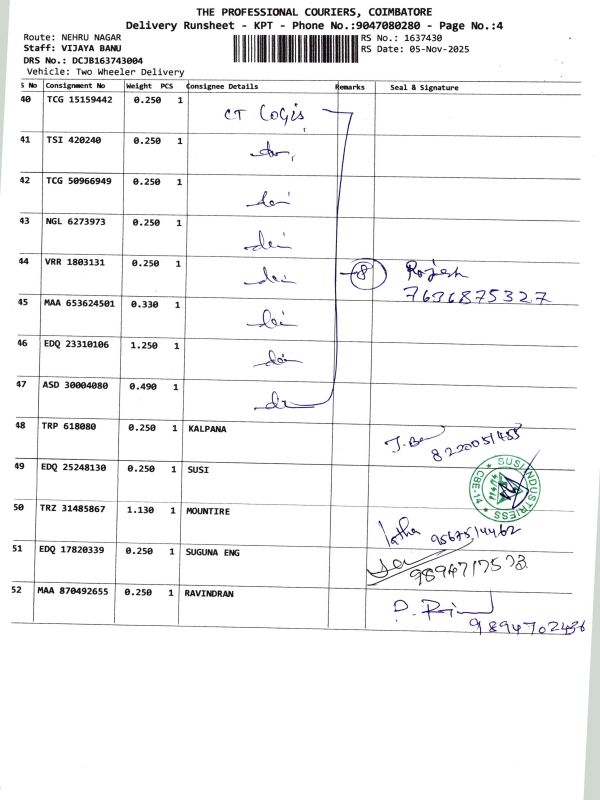 THE PROFESSIONAL COURIERS, COIMBATORE
Delivery Runsheet - KPT - Phone No.:9047080280 - Page No.:4
Route: NEHRU NAGAR RS No.: 1637430
Staff: VIJAYA BANU RS Date: 05-Nov-2025
DRS No.: DCJB163743004
Vehicle: Two Wheeler Delivery
S No Consignment No Weight PCS Consignee Details Remarks Seal & Signature
40 TCG 15159442 0.250 1 CT Logis,
41 TSI 420240 0.250 1
42 TCG 50966949 0.250 1
43 NGL 6273973 0.250 1
44 VRR 1803131 0.250 1 8 Rajesh
7636875327
45 MAA 653624501 0.330 1
46 EDQ 23310106 1.250 1
47 ASD 30004080 0.490 1
48 TRP 618080 0.250 1 KALPANA
49 EDQ 25248130 0.250 1 SUSI
SUSI INDUSTRIESS CBE-14
50 TRZ 31485867 1.130 1 MOUNTIRE
latha
51 EDQ 17820339 0.250 1 SUGUNA ENG
52 MAA 870492655 0.250 1 RAVINDRAN